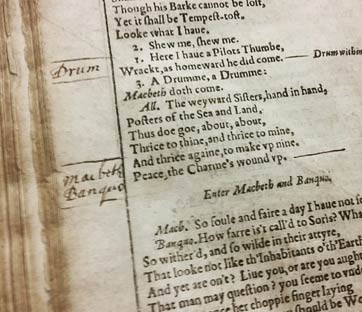 Though his Barke cannot be lost,
Yet it shall be Tempest-tost.
Looke what I haue.
2. Shew me, shew me.
1. Here I haue a Pilots Thumbe,
Wrackt, as homeward he did come. Drum within
Drum
3. A Drumme, a Drumme:
Macbeth doth come.
All. The weyward Sisters, hand in hand,
Posters of the Sea and Land,
Thus doe goe, about, about,
Thrice to thine, and thrice to mine,
And thrice againe, to make vp nine.
Peace, the Charme's wound vp.
Macbeth
Banquo
Enter Macbeth and Banquo.
Macb. So foule and faire a day I haue not
Banquo. How farre is't call'd to Soris? What
So wither'd, and so wilde in their attyre,
That looke not like th'Inhabitants o'th'Earth
And yet are on't? Liue you, or are you aught
That man may question? you seeme to
her choppie finger laying
should be